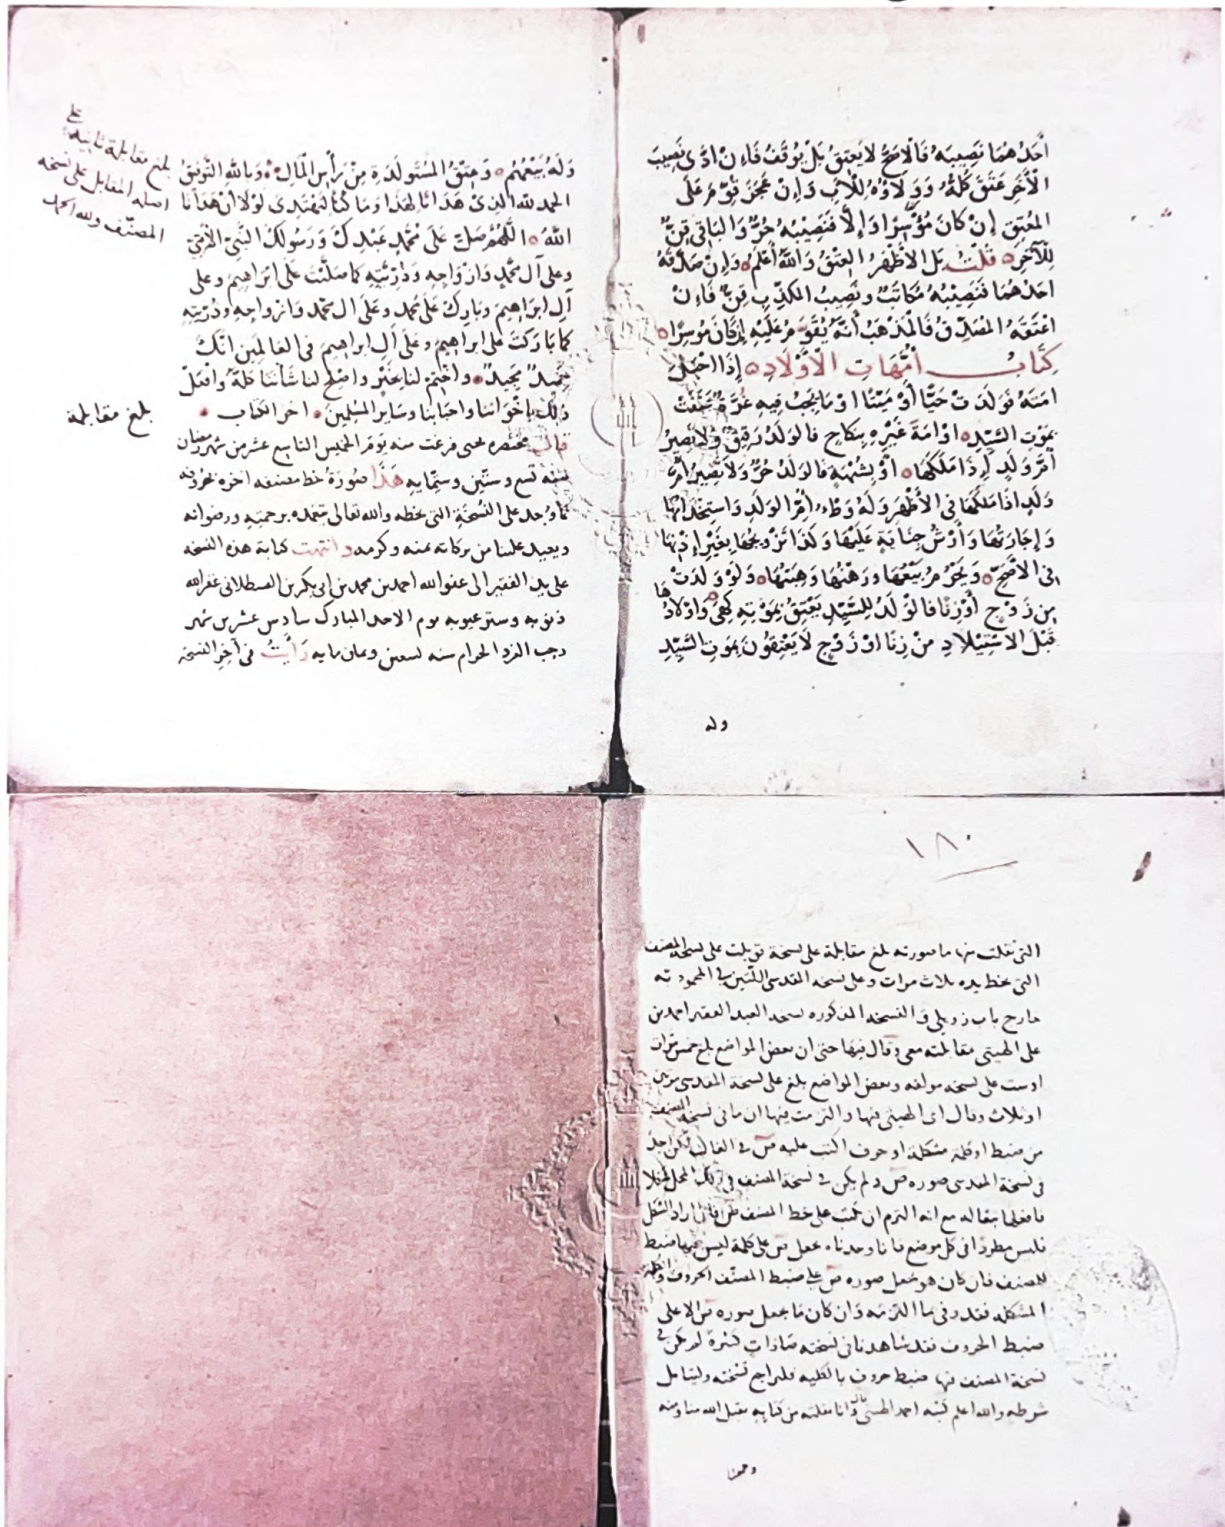 أحدهما نصيبه فالأصح لا يعتق بل يوقف فإن ادى نصيب
الآخر عتق كله وولاؤه للأب وإن عجز قوّم على
المعتق إن كان موسرا وإلا فنصيبه حرّ والباقي قنّ
للآخر قلت بل الأظهر العتق والله أعلم وإن صدّقه
احدهما فنصيبه مكاتب ونصيب المكذّب قنّ فإن
اعتقه المصدّق فالمذهب أنه يقوّم عليه إن كان موسرا
كتاب أمّهات الأولاد إذا احبل
امته فولدت حيّا أو ميّتا او ما يجب فيه غرّة عتقت
بموت السّيّد او امة غيره بنكاح فالولد رقيق ولا تصير
أمّ ولد إذا ملكها أو بشبهة فالولد حرّ ولا تصير أمّ
ولد اذا ملكها في الأظهر وله وطء أمّ الولد واستخدامها
وإجارتها وأرش جناية عليها وكذا تزويجها بغير إذنها
في الأصحّ ويحرم بيعها ورهنها وهبتها ولو ولدت
من زوج أو زنا فالولد للسّيّد يعتق بموته كهي وأولادها
قبل الاستيلاد من زنا او زوج لا يعتقون بموت السّيّد
وله
وله بيعهم وعتق المستولدة من رأس المال وبالله التّوفيق
الحمد لله الذي هدانا لهذا وما كنّا لنهتدي لولا أن هدانا
الله اللّهمّ صلّ على محمّد عبدك ورسولك النّبيّ الأمّيّ
وعلى آل محمّد وازواجه وذرّيّته كما صلّيت على ابراهيم وعلى
آل ابراهيم وبارك على محمد وعلى ال محمد وازواجه وذرّيته
كما باركت على ابراهيم وعلى آل ابراهيم في العالمين انّك
حميد مجيد واختم لنا بخير واصلح لنا شأننا كلّه وافعل
ذلك بإخواننا واحبابنا وساير المسلمين اخر الكتاب
قال مختصره يحيى فرغت منه يوم الخميس التاسع عشر من شهر رمضان
سنة تسع وستّين وستمايه هذا صورة خط مصنفه اخره بحروفه
مما وجد على النّسخة التي بخطه والله تعالى يتغمده برحمته ورضوانه
ويعيد علينا من بركاته بمنه وكرمه وانتهت كتابة هذه النسخه
على يد الفقير الى عفو الله احمد بن محمد بن ابي بكر بن القسطلاني غفر الله
ذنوبه وستر عيوبه يوم الاحد المبارك سادس عشر من شهر
رجب الفرد الحرام سنه وثمان مايه رأيت في آخر النسخه
بلغ مقابلة ثانية على
اصله المقابل على نسخة
المصنّف ولله الحمد
بلغ مقابلة
١٨٠
التي نقلت منها ما صورته بلغ مقابلة على نسخة قوبلت على نسخة المصنف
التي بخط يده ثلاث مرات وعلى نسخه المقدسي اللّتين في المحموديه
خارج باب زويلي والنسخه المذكوره نسخه العبد الفقير احمد بن
على الهيتمي مقابلته معي وقال فيها حتى ان بعض المواضع بلغ خمس مرّات
اوست على نسخه مولفه وبعض المواضع بلغ على نسخة المقدسي مرّتين
او ثلاث وقال اي الهيتمي فيها والتزمت فيها ان ما في نسخة المصنف
من ضبط او كلمة مشكلة او حرف اكتب عليه ص في الغالب
في نسخة المقدسي صوره ص ولم يكن في نسخة المصنف في ذلك المحل
مع انه التزم ان يكتب على خط المصنف ص فان اراد الشّكل
فليس مطردا في كل موضع فانا وجدناه يجعل ص على كلمة ليس فيها ضبط
للمصنف فان كان هو يجعل صوره ص على ضبط المصنّف الحروف والكلمة
المشكله فقد وفى بما التزمه وان كان ما يجعل صوره ص الا على
ضبط الحروف فقد شاهدنا في نسخته صادات كثيرة لم يكن في
نسخة المصنف فيها ضبط حروف بالكليه فليراجع نسخته وليتامل
شرطه والله اعلم كتبه احمد الهيتمي قال وانا نقلته من كتابه تقبل الله منا ومنه